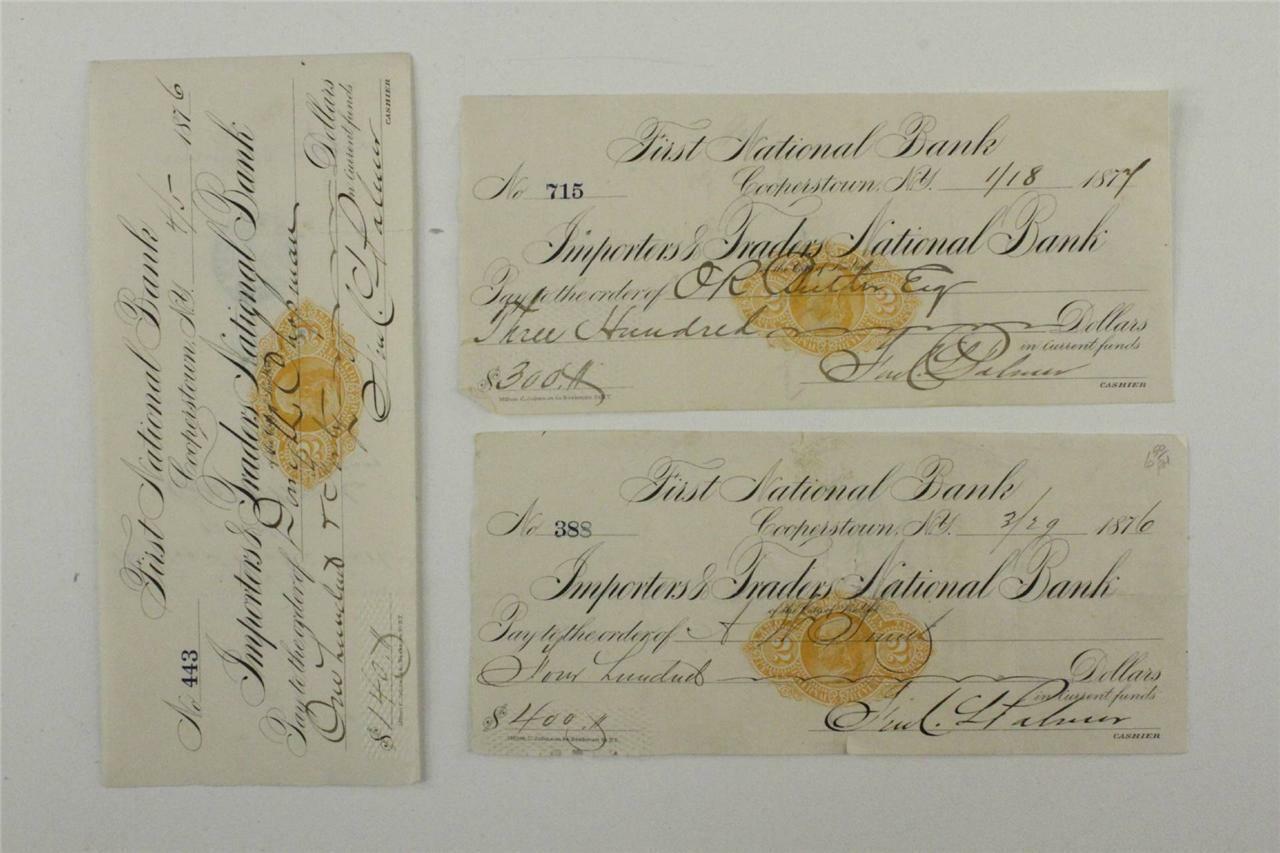 First National Bank
No 443 Cooperstown, N.Y. 4/5 1876
Importers & Traders National Bank
Pay to the order of
One hundred
Dollars
in Current funds
$140.
CASHIER
First National Bank
No 715 Cooperstown, N.Y. 1/18 1877
Importers & Traders National Bank
Pay to the order of O R Butler Esq
Three Hundred Dollars
in Current funds
$300. Palmer
CASHIER
First National Bank
No 388 Cooperstown, N.Y. 3/29 1876
Importers & Traders National Bank
of the City of
Pay to the order of A
Four hundred Dollars
in Current funds
$400. Palmer
CASHIER